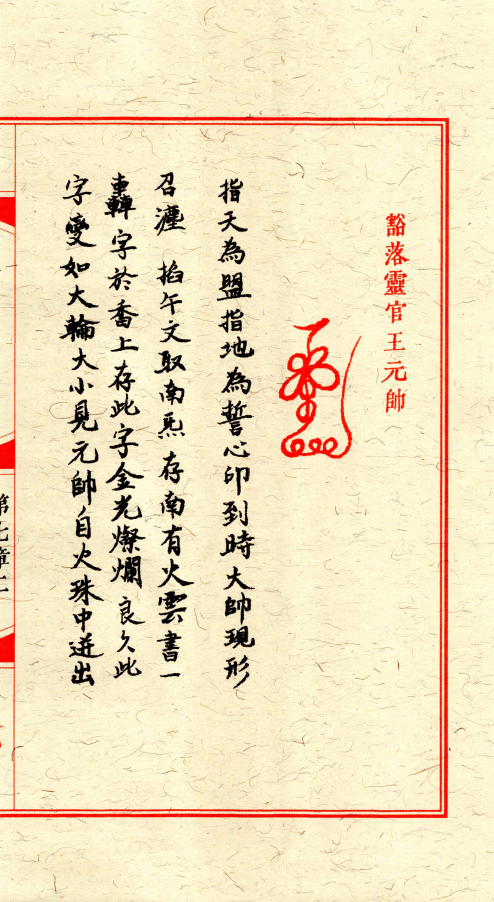 豁落靈官王元帥
指天為盟指地為誓心印到時大帥現形
召遣 掐午文取南炁存南有火雲書一
轟字於香上存此字金光燦爛良久此
字變如大輪大小見元帥自火珠中迸出
第七章二